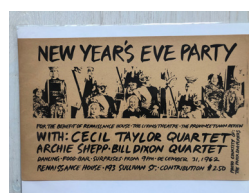 NEW YEAR'S EVE PARTY
FOR THE BENEFIT OF RENAISSANCE HOUSE · THE LIVING THEATRE · THE PROVINCETOWN REVIEW
WITH: CECIL TAYLOR QUARTET
ARCHIE SHEPP-BILL DIXON QUARTET
DANCING·FOOD·BAR·SURPRISES·FROM 9PM·DECEMBER 31, 1962
RENAISSANCE HOUSE·193 SULLIVAN ST·CONTRIBUTION $2.50